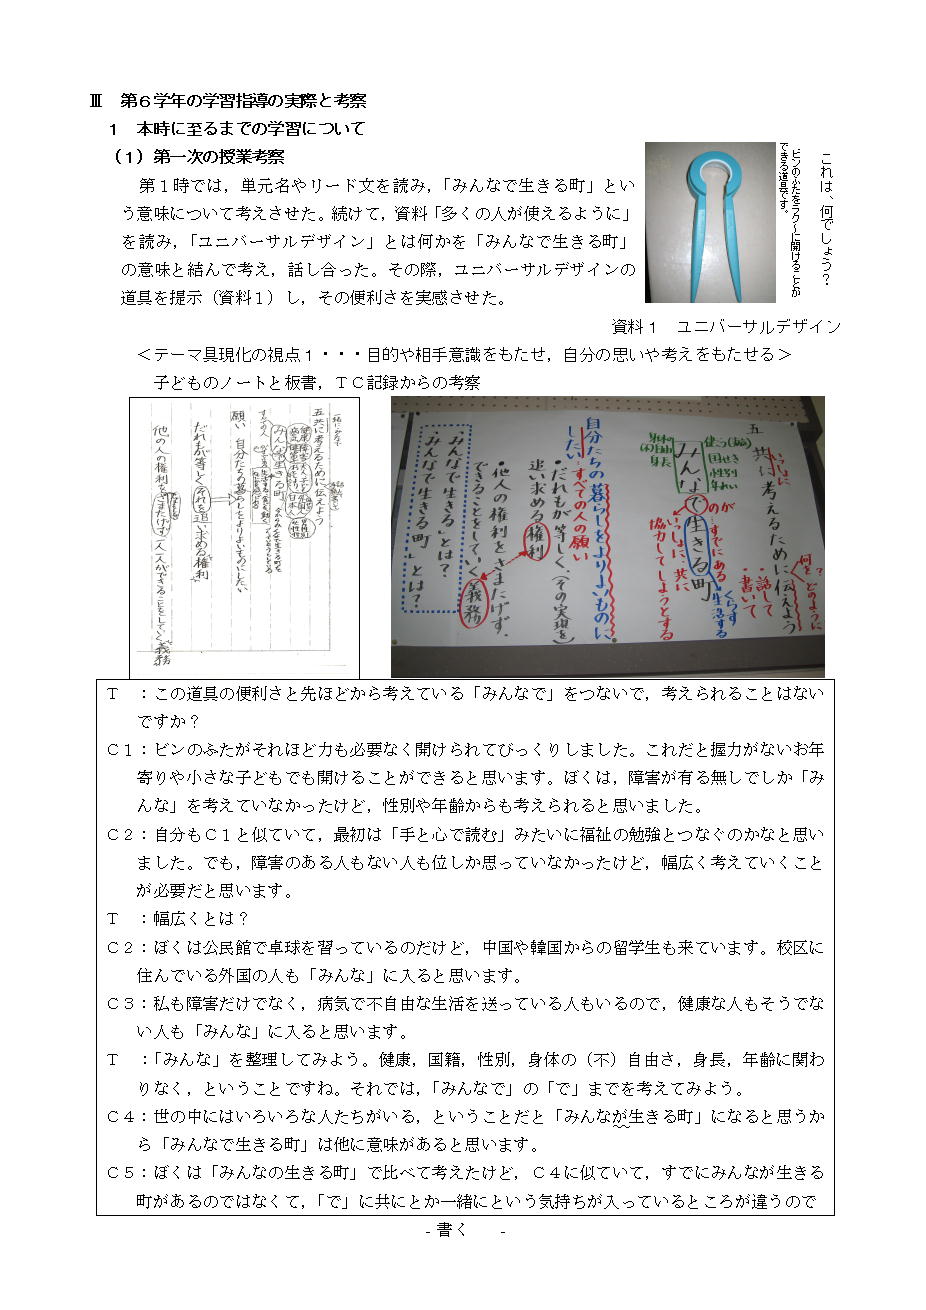 Ⅲ　第６学年の学習指導の実際と考察
１　本時に至るまでの学習について
（１）第一次の授業考察
第１時では，単元名やリード文を読み，「みんなで生きる町」とい
う意味について考えさせた。続けて，資料「多くの人が使えるように」
を読み，「ユニバーサルデザイン」とは何かを「みんなで生きる町」
の意味と結んで考え，話し合った。その際，ユニバーサルデザインの
道具を提示（資料１）し，その便利さを実感させた。
これは、何でしょう？
ビンのふたをラク～に開けることが
できる道具です。
資料１　ユニバーサルデザイン
＜テーマ具現化の視点１・・・目的や相手意識をもたせ，自分の思いや考えをもたせる＞
子どものノートと板書，ＴＣ記録からの考察
五 共に考えるために伝えよう
みんなで生きる町
願い 自分たちの暮らしをよりよいものにしたい
だれもが等しくそれを追い求める権利
他の人の権利をさまたげず一人一人ができることをしていく義務
五 共に考えるために伝えよう
いっしょに
何を？どのように
・話して
・書いて
みんなで生きる町
のが
すでにある
くらす
生活する
いっしょに、共に
協力してしようとする
国せき
性別
年れい
身長
自分たちの暮らしをよりよいものに
したい
すべての人の願い
・だれもが等しく、（その実現を）
追い求める権利
・他人の権利をさまたげず、
できることをしていく義務
「みんなで生きる」とは？
「みんなで生きる町」とは？
Ｔ　：この道具の便利さと先ほどから考えている「みんなで」をつないで，考えられることはない
ですか？
Ｃ１：ビンのふたがそれほど力も必要なく開けられてびっくりしました。これだと握力がないお年
寄りや小さな子どもでも開けることができると思います。ぼくは，障害が有る無しでしか「み
んな」を考えていなかったけど，性別や年齢からも考えられると思いました。
Ｃ２：自分もＣ１と似ていて，最初は「手と心で読む」みたいに福祉の勉強とつなぐのかなと思い
ました。でも，障害のある人もない人も位しか思っていなかったけど，幅広く考えていくこと
が必要だと思います。
Ｔ　：幅広くとは？
Ｃ２：ぼくは公民館で卓球を習っているのだけど，中国や韓国からの留学生も来ています。校区に
住んでいる外国の人も「みんな」に入ると思います。
Ｃ３：私も障害だけでなく，病気で不自由な生活を送っている人もいるので，健康な人もそうでな
い人も「みんな」に入ると思います。
Ｔ　：「みんな」を整理してみよう。健康，国籍，性別，身体の（不）自由さ，身長，年齢に関わ
りなく，ということですね。それでは，「みんなで」の「で」までを考えてみよう。
Ｃ４：世の中にはいろいろな人たちがいる，ということだと「みんなが生きる町」になると思うか
ら「みんなで生きる町」は他に意味があると思います。
Ｃ５：ぼくは「みんなの生きる町」で比べて考えたけど，Ｃ４に似ていて，すでにみんなが生きる
町があるのではなくて，「で」に共にとか一緒にという気持ちが入っているところが違うので
- 書く　　-